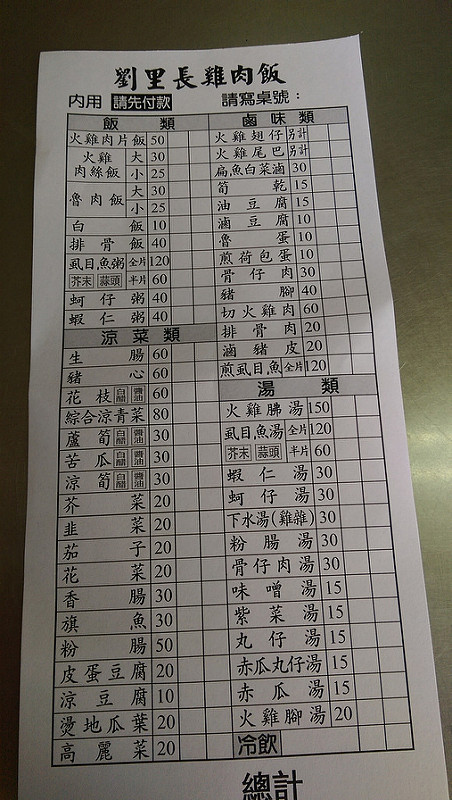 劉里長雞肉飯
內用 請先付款 請寫桌號：
飯類
火雞肉片飯 50
火雞肉絲飯 大 30
小 25
魯肉飯 大 30
小 25
白飯 10
排骨飯 40
虱目魚粥 全片 120
芥末 蒜頭 半片 60
蚵仔粥 40
蝦仁粥 40
涼菜類
生腸 60
豬心 60
花枝 白醋 醬油 60
綜合涼青菜 80
蘆筍 白醋 醬油 30
苦瓜 白醋 醬油 30
涼筍 白醋 醬油 30
芥菜 20
韭菜 20
茄子 20
花菜 20
香腸 30
旗魚 30
粉腸 50
皮蛋豆腐 20
涼豆腐 10
燙地瓜葉 20
高麗菜 20
滷味類
火雞翅仔 另計
火雞尾巴 另計
扁魚白菜滷 30
筍乾 15
油豆腐 15
滷豆腐 10
魯蛋 10
煎荷包蛋 10
骨仔肉 30
豬腳 40
切火雞肉 60
排骨肉 20
滷豬皮 20
煎虱目魚 全片 120
湯類
火雞腸湯 150
虱目魚湯 全片 120
芥末 蒜頭 半片 60
蝦仁湯 30
蚵仔湯 30
下水湯(雞雜) 30
粉腸湯 30
骨仔肉湯 30
味噌湯 15
紫菜湯 15
丸仔湯 15
赤瓜丸仔湯 15
赤瓜湯 15
火雞腳湯 20
冷飲
總計